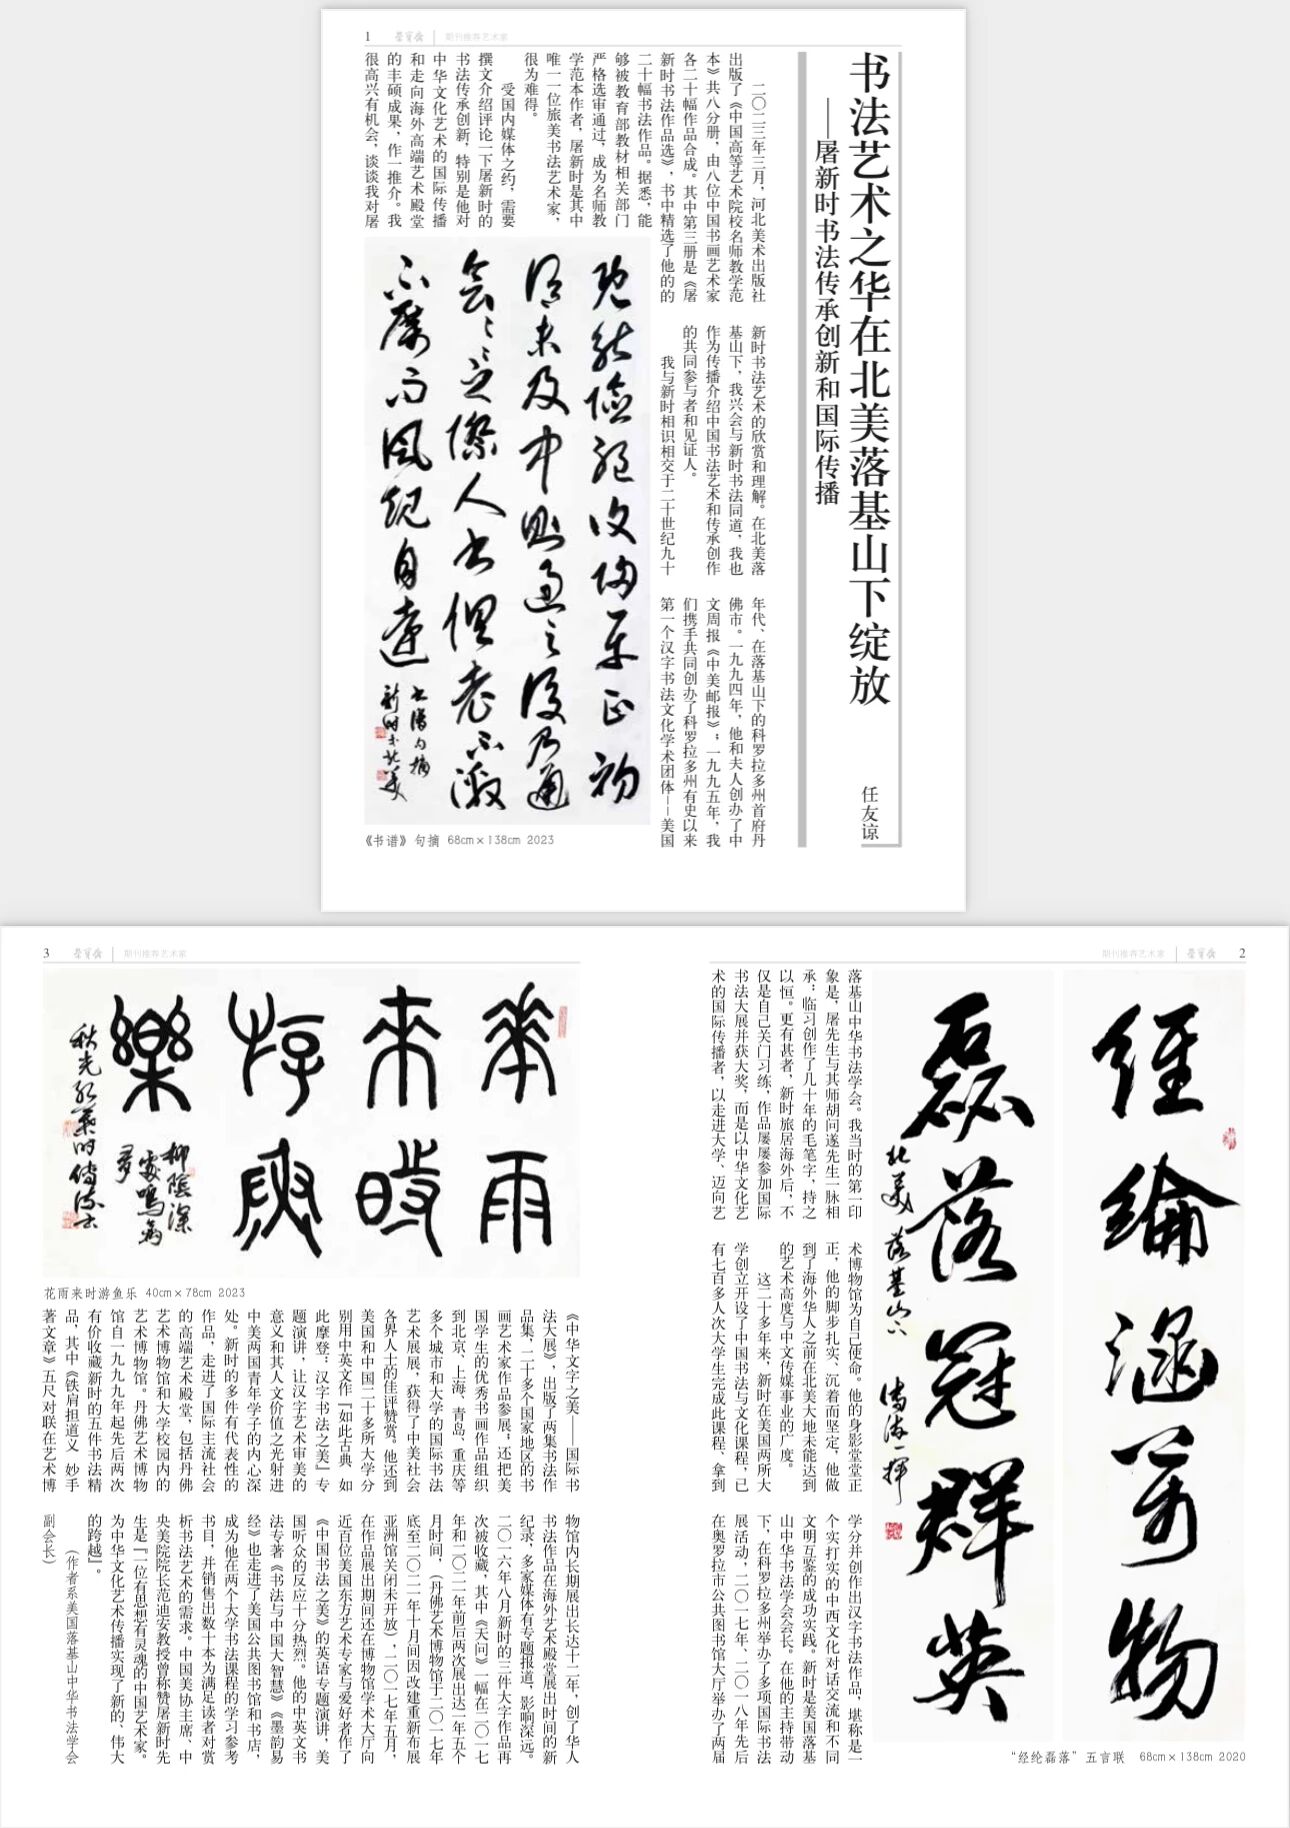 1 荣宝斋 期刊推荐艺术家
书法艺术之华在北美落基山下绽放
——屠新时书法传承创新和国际传播
任友谅
二〇二三年三月，河北美术出版社
出版了《中国高等艺术院校名师教学范
本》共八分册，由八位中国书画艺术家
各二十幅作品合成。其中第三册是《屠
新时书法作品选》，书中精选了他的的
二十幅书法作品。据悉，能
够被教育部教材相关部门
严格选审通过，成为名师教
学范本作者，屠新时是其中
唯一一位旅美书法艺术家，
很为难得。
受国内媒体之约，需要
撰文介绍评论一下屠新时的
书法传承创新，特别是他对
中华文化艺术的国际传播
和走向海外高端艺术殿堂
的丰硕成果，作一推介。我
很高兴有机会，谈谈我对屠
新时书法艺术的欣赏和理解。在北美落
基山下，我兴会与新时书法同道，我也
作为传播介绍中国书法艺术和传承创作
的共同参与者和见证人。
我与新时相识相交于二十世纪九十
年代、在落基山下的科罗拉多州首府丹
佛市。一九九四年，他和夫人创办了中
文周报《中美邮报》；一九九五年，我
们携手共同创办了科罗拉多州有史以来
第一个汉字书法文化学术团体—美国
既能险绝复归平正初
谓未及中则过之后乃通
会通会之际人书俱老不激
不厉而风规自远
书谱句摘
新时书于北美
《书谱》句摘 68cm×138cm 2023
2 荣宝斋 期刊推荐艺术家
经纶涵万物
磊落冠群英
北美落基山下 新时 一挥
“经纶磊落”五言联 68cm×138cm 2020
落基山中华书法学会。我当时的第一印
象是，屠先生与其师胡问遂先生一脉相
承：临习创作了几十年的毛笔字，持之
以恒。更有甚者，新时旅居海外后，不
仅是自己关门习练，作品屡屡参加国际
书法大展并获大奖，而是以中华文化艺
术的国际传播者，以走进大学、迈向艺
术博物馆为自己使命。他的身影堂堂正
正，他的脚步扎实、沉着而坚定，他做
到了海外华人之前在北美大地未能达到
的艺术高度与中文传媒事业的广度。
这二十多年来，新时在美国两所大
学创立开设了中国书法与文化课程，已
有七百多人次大学生完成此课程、拿到
学分并创作出汉字书法作品，堪称是一
个实打实的中西文化对话交流和不同
文明互鉴的成功实践。新时是美国落基
山中华书法学会会长。在他的主持带动
下，在科罗拉多州举办了多项国际书法
展活动，二〇一七年、二〇一八年先后
在奥罗拉市公共图书馆大厅举办了两届
3 荣宝斋 期刊推荐艺术家
花雨来时游鱼乐
柳阴深处鸣禽多
花雨来时游鱼乐 40cm×78cm 2023
《中华文字之美——国际书
法大展》，出版了两集书法作
品集，二十多个国家地区的书
画艺术家作品参展；还把美
国学生的优秀书画作品组织
到北京、上海、青岛、重庆等
多个城市和大学的国际书法
艺术展展，获得了中美社会
各界人士的佳评赞赏。他还到
美国和中国二十多所大学分
别用中英文作『如此古典 如
此摩登：汉字书法之美』专
题演讲，让汉字艺术审美的
意义和其人文价值之光射进
中美两国青年学子的内心深
处。新时的多件有代表性的
作品，走进了国际主流社会
的高端艺术殿堂，包括丹佛
艺术博物馆和大学校园内的
艺术博物馆。丹佛艺术博物
馆自一九九九年起先后两次
有价收藏新时的五件书法精
品，其中《铁肩担道义 妙手
著文章》五尺对联在艺术博
物馆内长期展出长达十二年，创了华人
书法作品在海外艺术殿堂展出时间的新
纪录，多家媒体有专题报道，影响深远。
二〇一六年八月新时的三件大字作品再
次被收藏，其中《天问》一幅在二〇一七
年和二〇二二年前后两次展出达一年五个
月时间，（丹佛艺术博物馆于二〇一七年
底至二〇二一年十月间因改建重新布展
亚洲馆关闭未开放），二〇一七年五月，
在作品展出期间还在博物馆学术大厅向
近百位美国东方艺术专家与爱好者作了
《中国书法之美》的英语专题演讲，美
国听众的反应十分热烈。他的中英文书
法专著《书法与中国大智慧》《墨韵易
经》也走进了美国公共图书馆和书店，
成为他在两个大学书法课程的学习参考
书目，并销售出数十本为满足读者对赏
析书法艺术的需求。中国美协主席、中
央美院院长范迪安教授曾称赞屠新时先
生是『一位有思想有灵魂的中国艺术家。
为中华文化艺术传播实现了新的、伟大
的跨越』。
（作者系美国落基山中华书法学会
副会长）